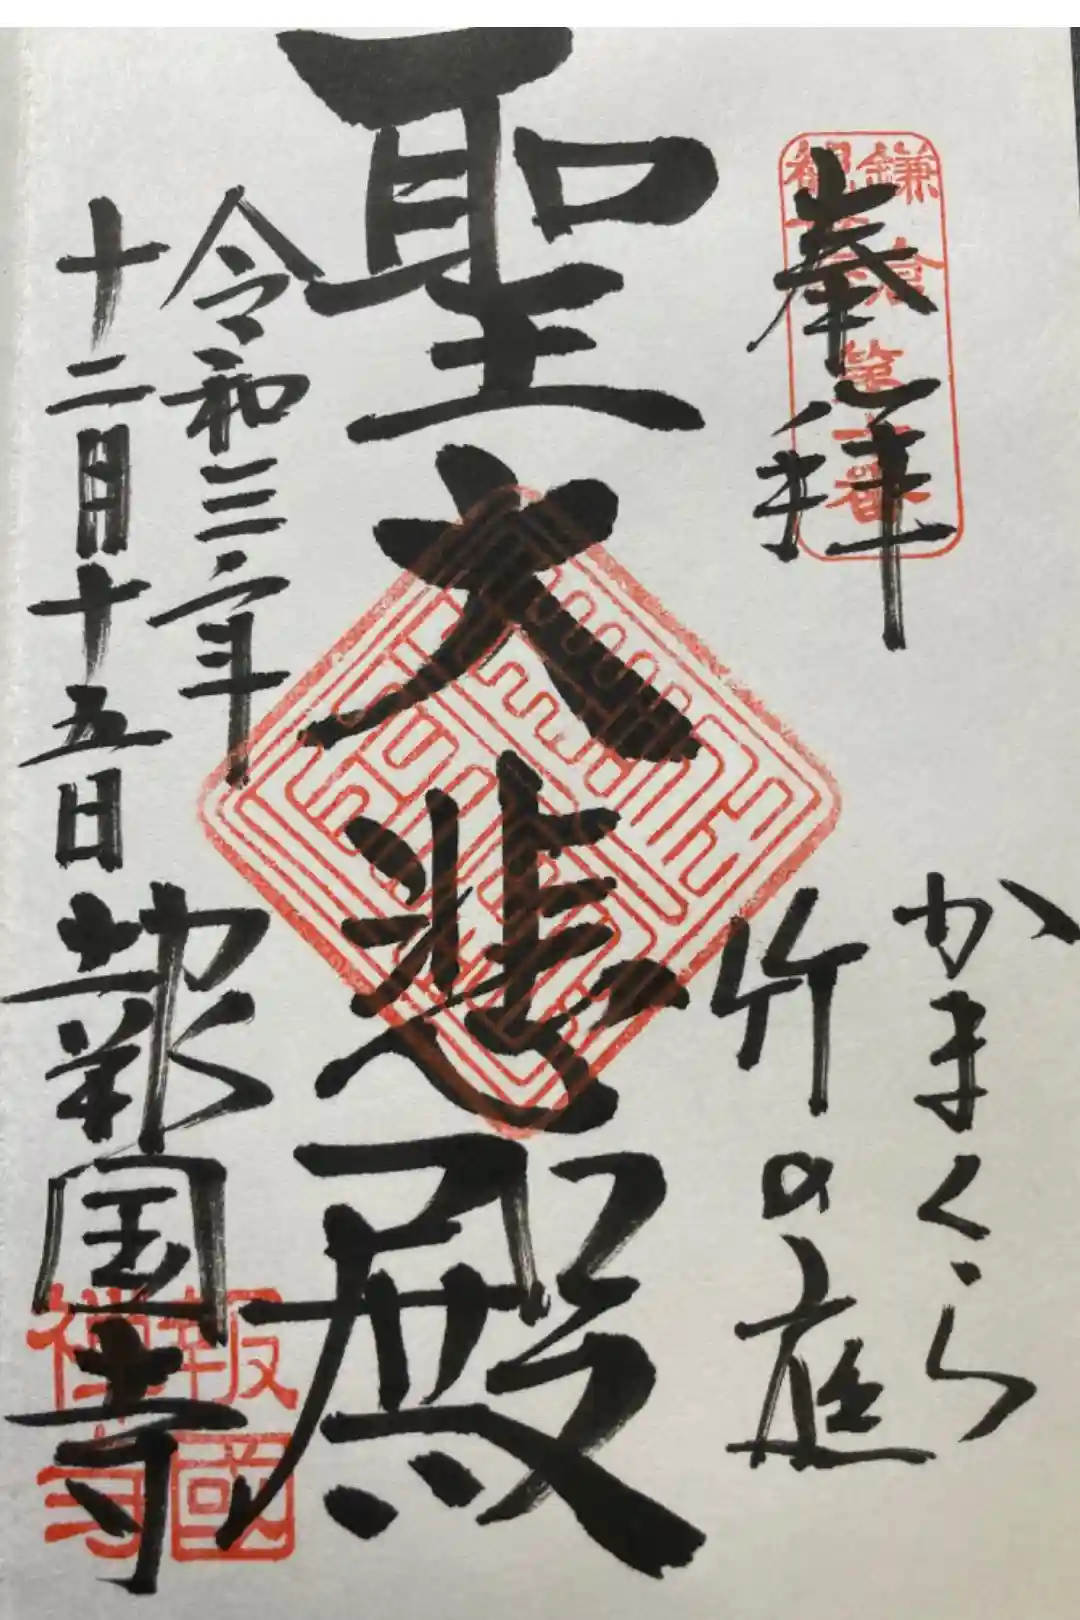 奉拝
鎌倉
観音
第十番
かまくら
竹の庭
聖大悲殿
令和三年
十二月十五日
報国寺
報國
禅寺